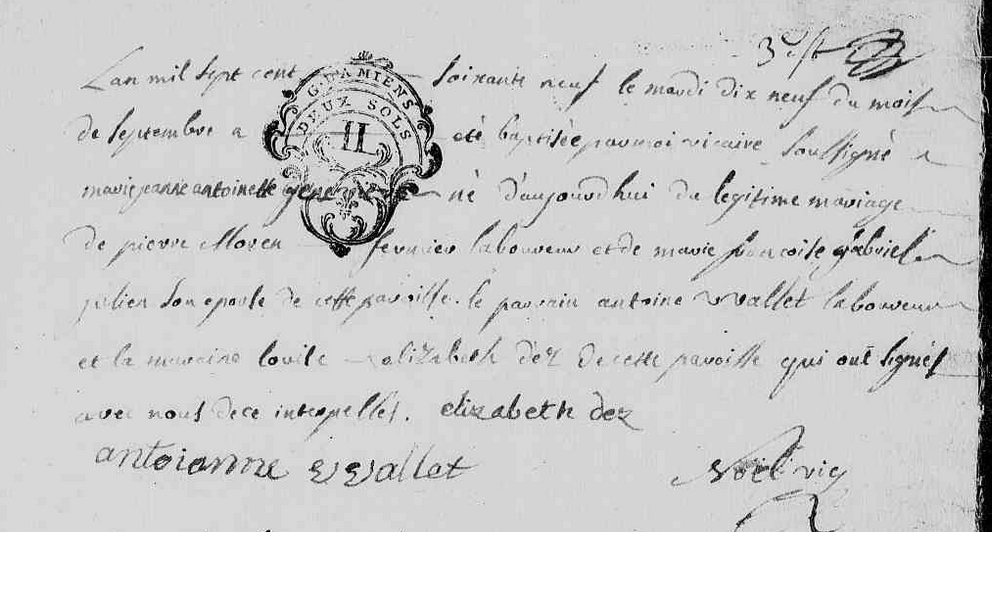 3e
Lan mil sept cent soixante neuf le mardi dix neuf du mois
G. D'AMIENS
DEUX SOLS
II
de septembre a eté baptisée par moi vicaire soussigné
marie jeanne antoinette né d'aujourdhui du legitime mariage
de pierre Moren fermier laboureur et de marie francoise gabriel
julien son epouse de cette paroisse. le parrain antoine wallet laboureur
et la maraine lovise elizabeth dez de cette paroisse qui ont signés
avec nous de ce interpellés. elizabeth dez
antoianne wallet
Noël vic